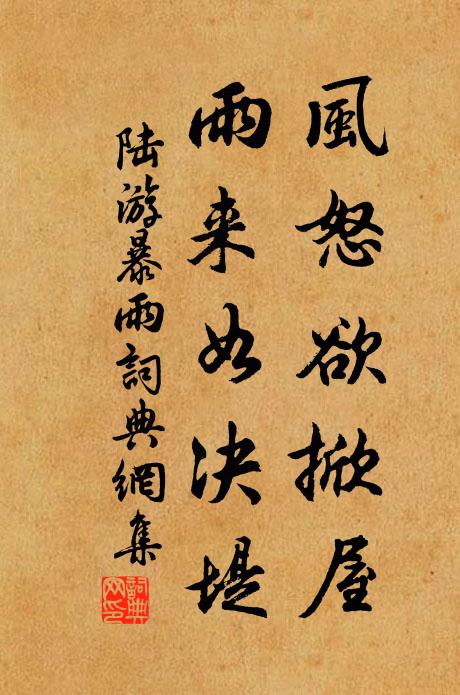 風怒欲掀屋
雨来如决堤
陆游暴雨詞典網集
詞典网印